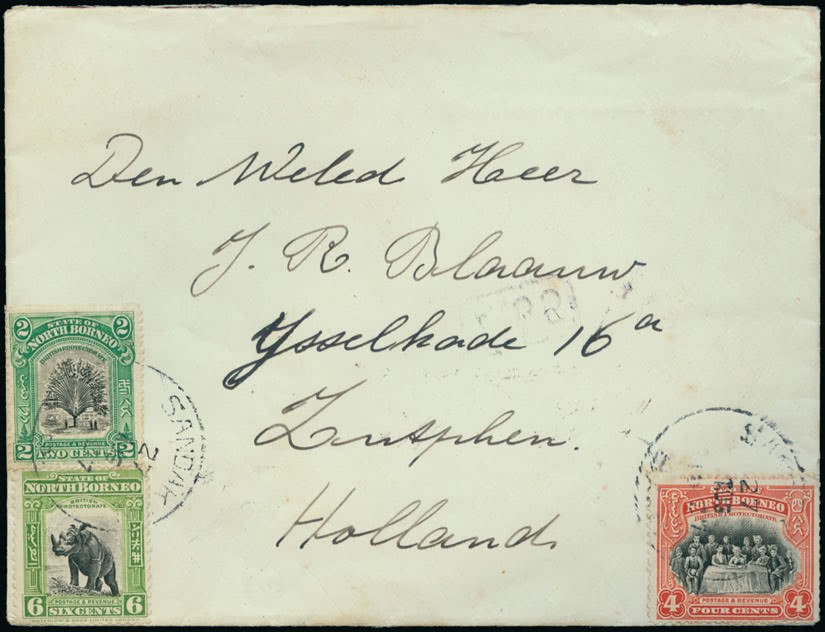 Den Weled Heer
J. R. Blaauw
Ysselkade 16 a
Zutphen.
Holland
2 2
STATE OF
NORTH BORNEO
BRITISH PROTECTORATE
2 POSTAGE & REVENUE 2
TWO CENTS
SANDAK
STATE OF
NORTH BORNEO
BRITISH
PROTECTORATE
POSTAGE & REVENUE
6 SIX CENTS 6
NORTH BORNEO
BRITISH PROTECTORATE
POSTAGE & REVENUE
4 FOUR CENTS 4